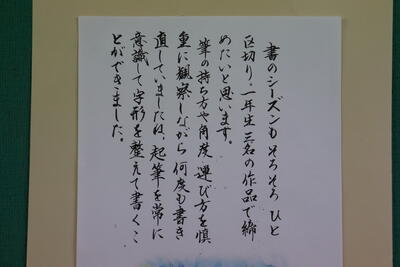 書のシーズンもそろそろひと
区切り・一年生三名の作品で締
めたいと思います。
筆の持ち方や角度運び方を慎
重に観察しながら何度も書き
直していましたね。起筆を常に
意識して字形を整えて書くこ
とができました。